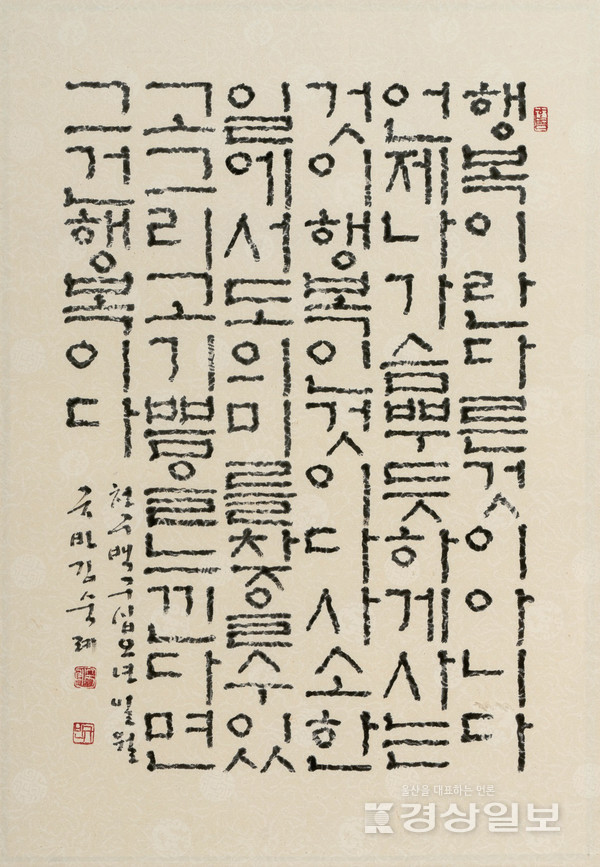 행복이란다른것이아니다
언제나가슴뿌듯하게사는
것이행복인것이다사소한
일에서도의미를찾을수있
고그리고기쁨을느낀다면
그건행복이다
천구백구십오년일월
김숙례
울산을 대표하는 언론
경상일보